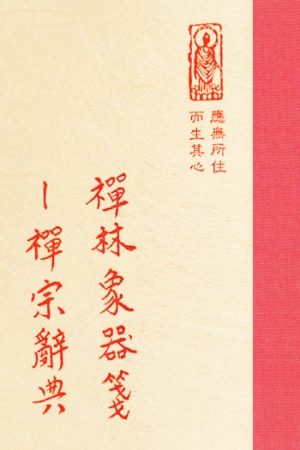 應無所住
而生其心
禪林象器箋
—禪宗辭典